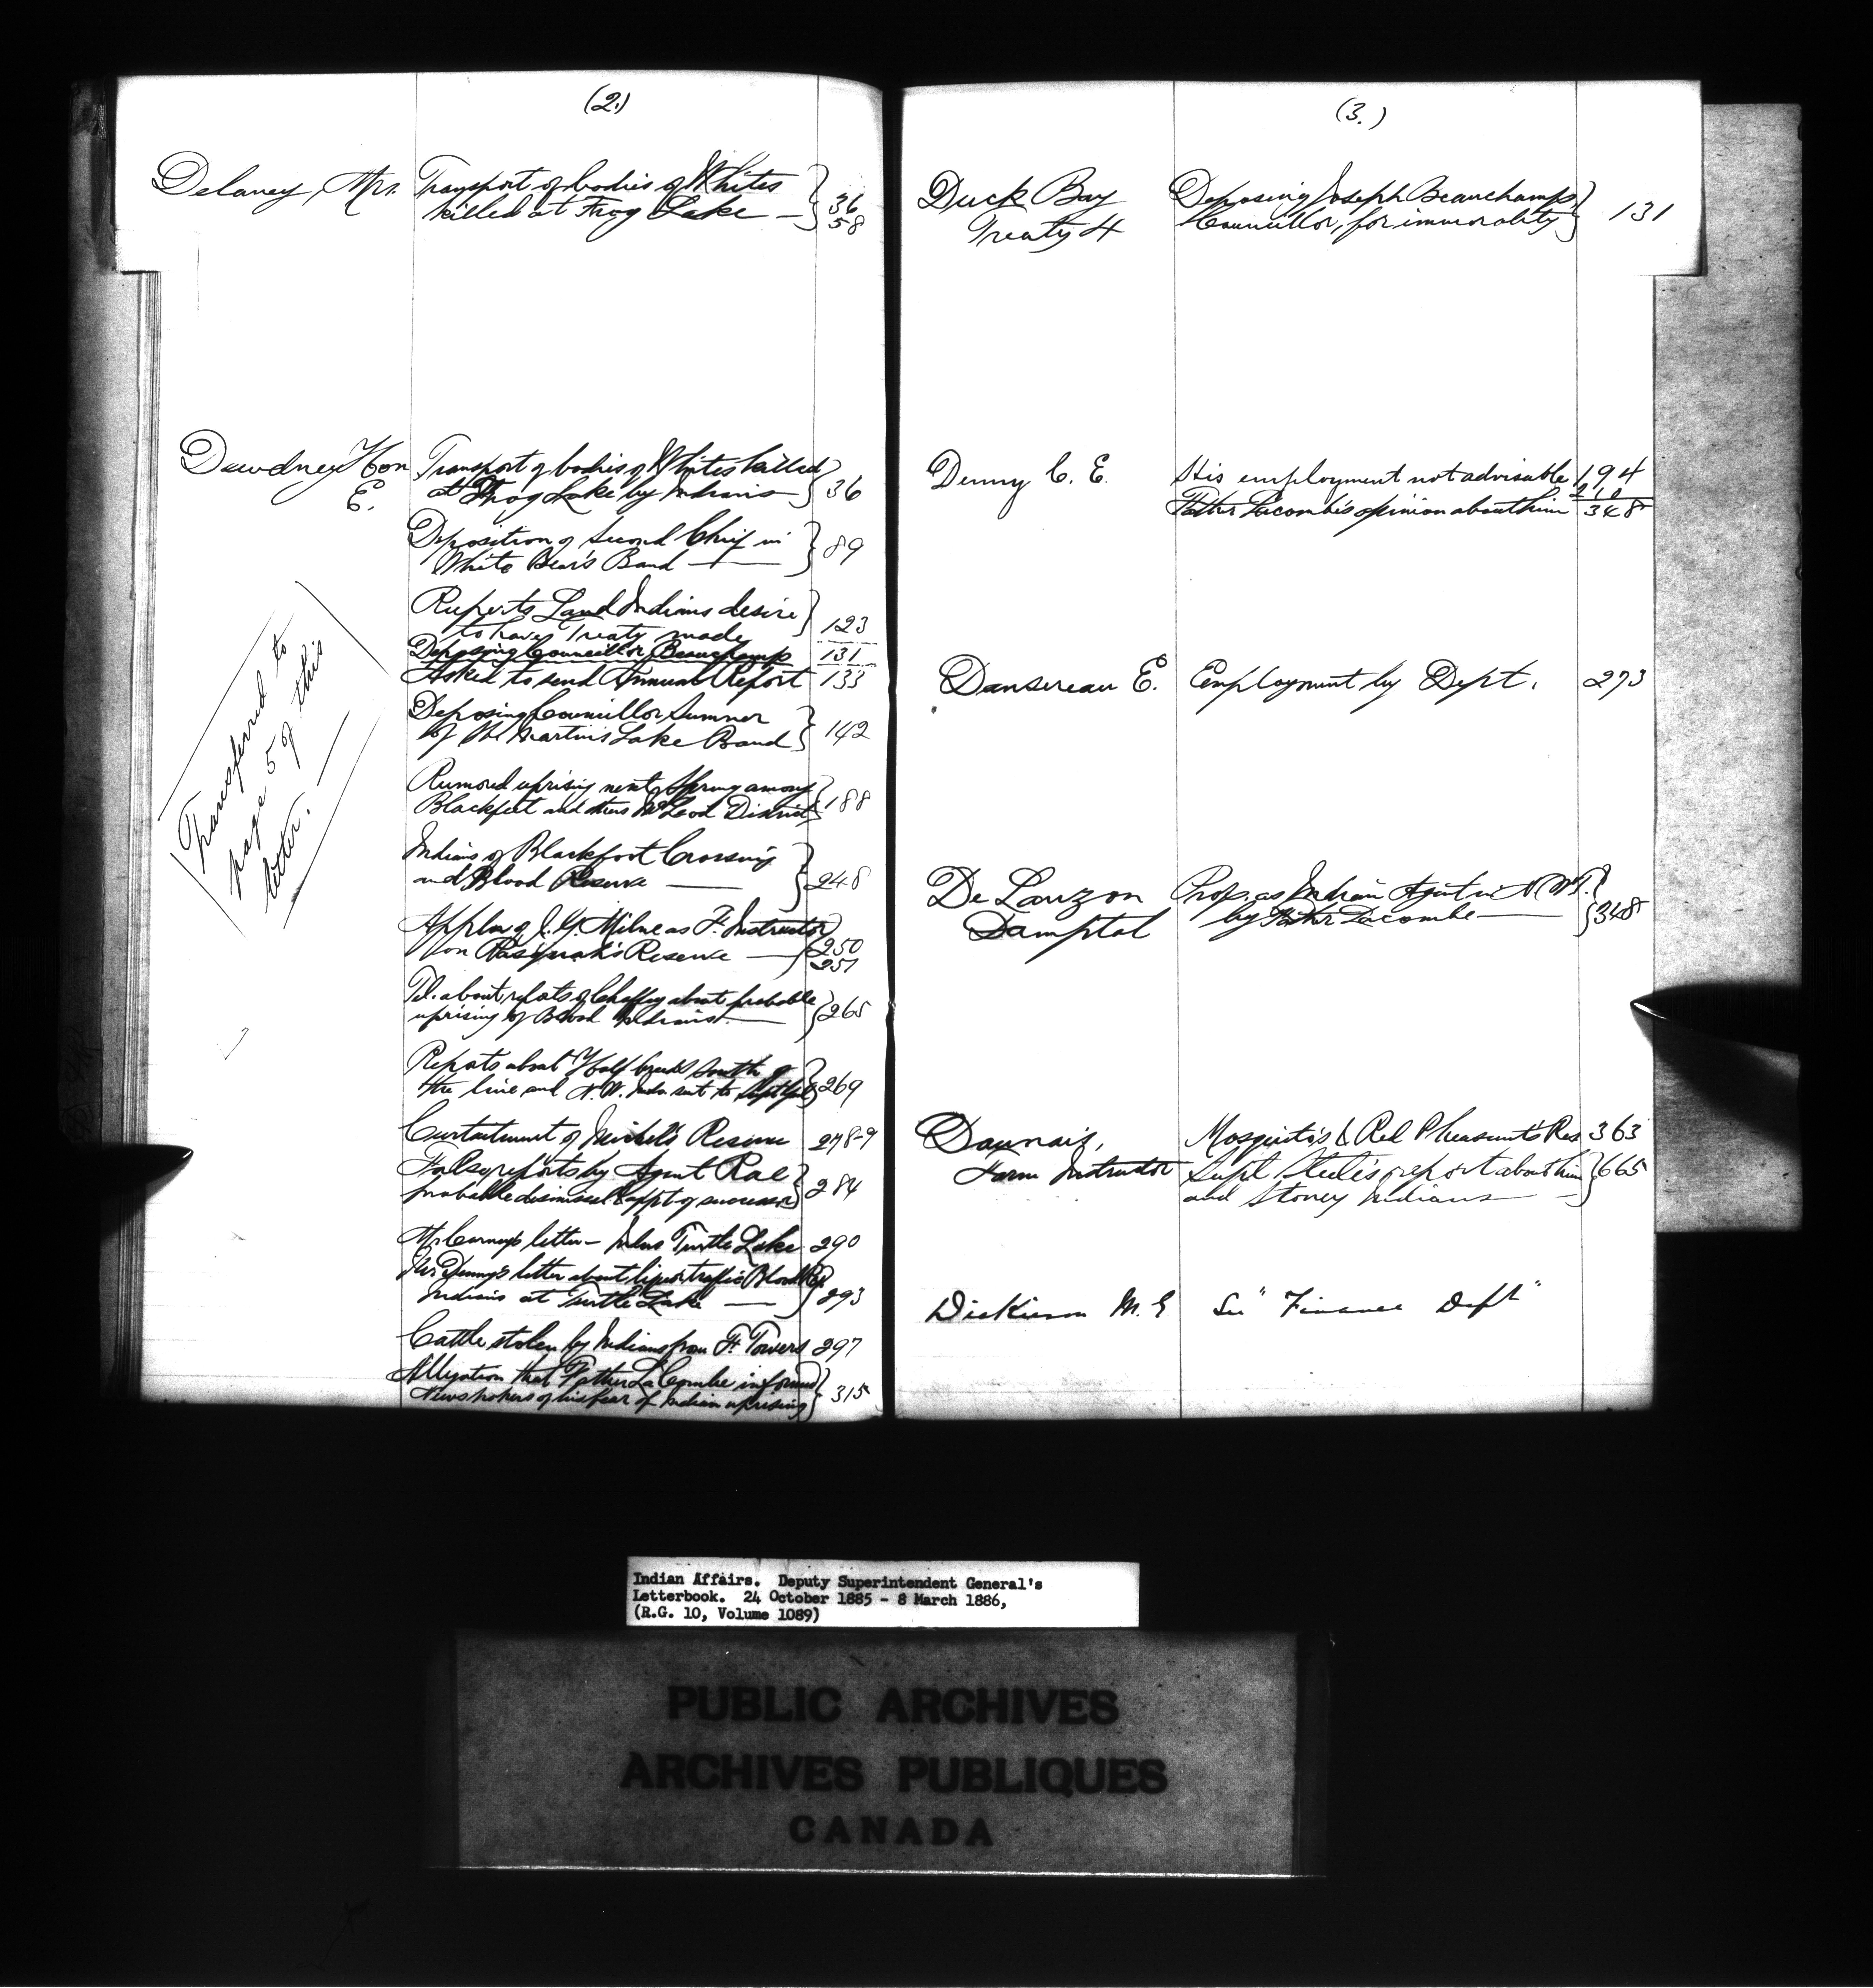 (2.)
Delaney, Mrs. Transport of bodies of Whites
killed at Frog Lake — 36
58
Dewdney Hon Transport of bodies of Whites killed
E. at Frog Lake by Indians — 36
Deposition of Second Chief in
White Bear's Band — 89
Ruperts Land Indians desire
to have Treaty made 123
Deposing Councillor Beauchamp 131
Asked to send Annual Report 133
Deposing Councillor Sumner
of the Martin's Lake Band 142
Rumored uprising next Spring among
Blackfeet and others McLeod District 188
Indians of Blackfoot Crossing
and Blood Reserve — 248
Appln of J. G. Milne as F. Instructor
on Pasquah's Reserve — 250
251
Tel. about reports of Chaffey about probable
uprising of Blood Indians — 265
Reports about Half breeds South of
the line and N.W. Inds sent to 269
Curtailment of Michel's Reserve 278-9
reports by Agent Rae
probable dismissal & appt of successor 284
letter — Inds Turtle Lake 290
Mr Denny's letter about liquor traffic Blood Res
Indians at Turtle Lake — 293
Cattle stolen by Indians from F. Towers 297
Allegation that Father LaCombe informed
Newspapers of his fear of Indian uprising 315
Transferred to
page 5 of this
letter.
(3.)
Duck Bay Deposing Joseph Beauchamp,
Treaty 4 Councillor, for immorality 131
Denny C. E. His employment not advisable 194
210
Father Lacombe's opinion about him 348
Dansereau E. Employment by Dept. 273
De Lauzon Prop. as Indian Agent in N.W.T.
Damptal by Father Lacombe — 348
Daunais, Mosquito's & Red Pheasant's Res 363
Farm Instructor Supt. Steele's report about him 665
and Stoney Indians —
Dickieson M. G See "Finance Dept"
Indian Affairs. Deputy Superintendent General's
Letterbook. 24 October 1885 - 8 March 1886,
(R.G. 10, Volume 1089)
PUBLIC ARCHIVES
ARCHIVES PUBLIQUES
CANADA